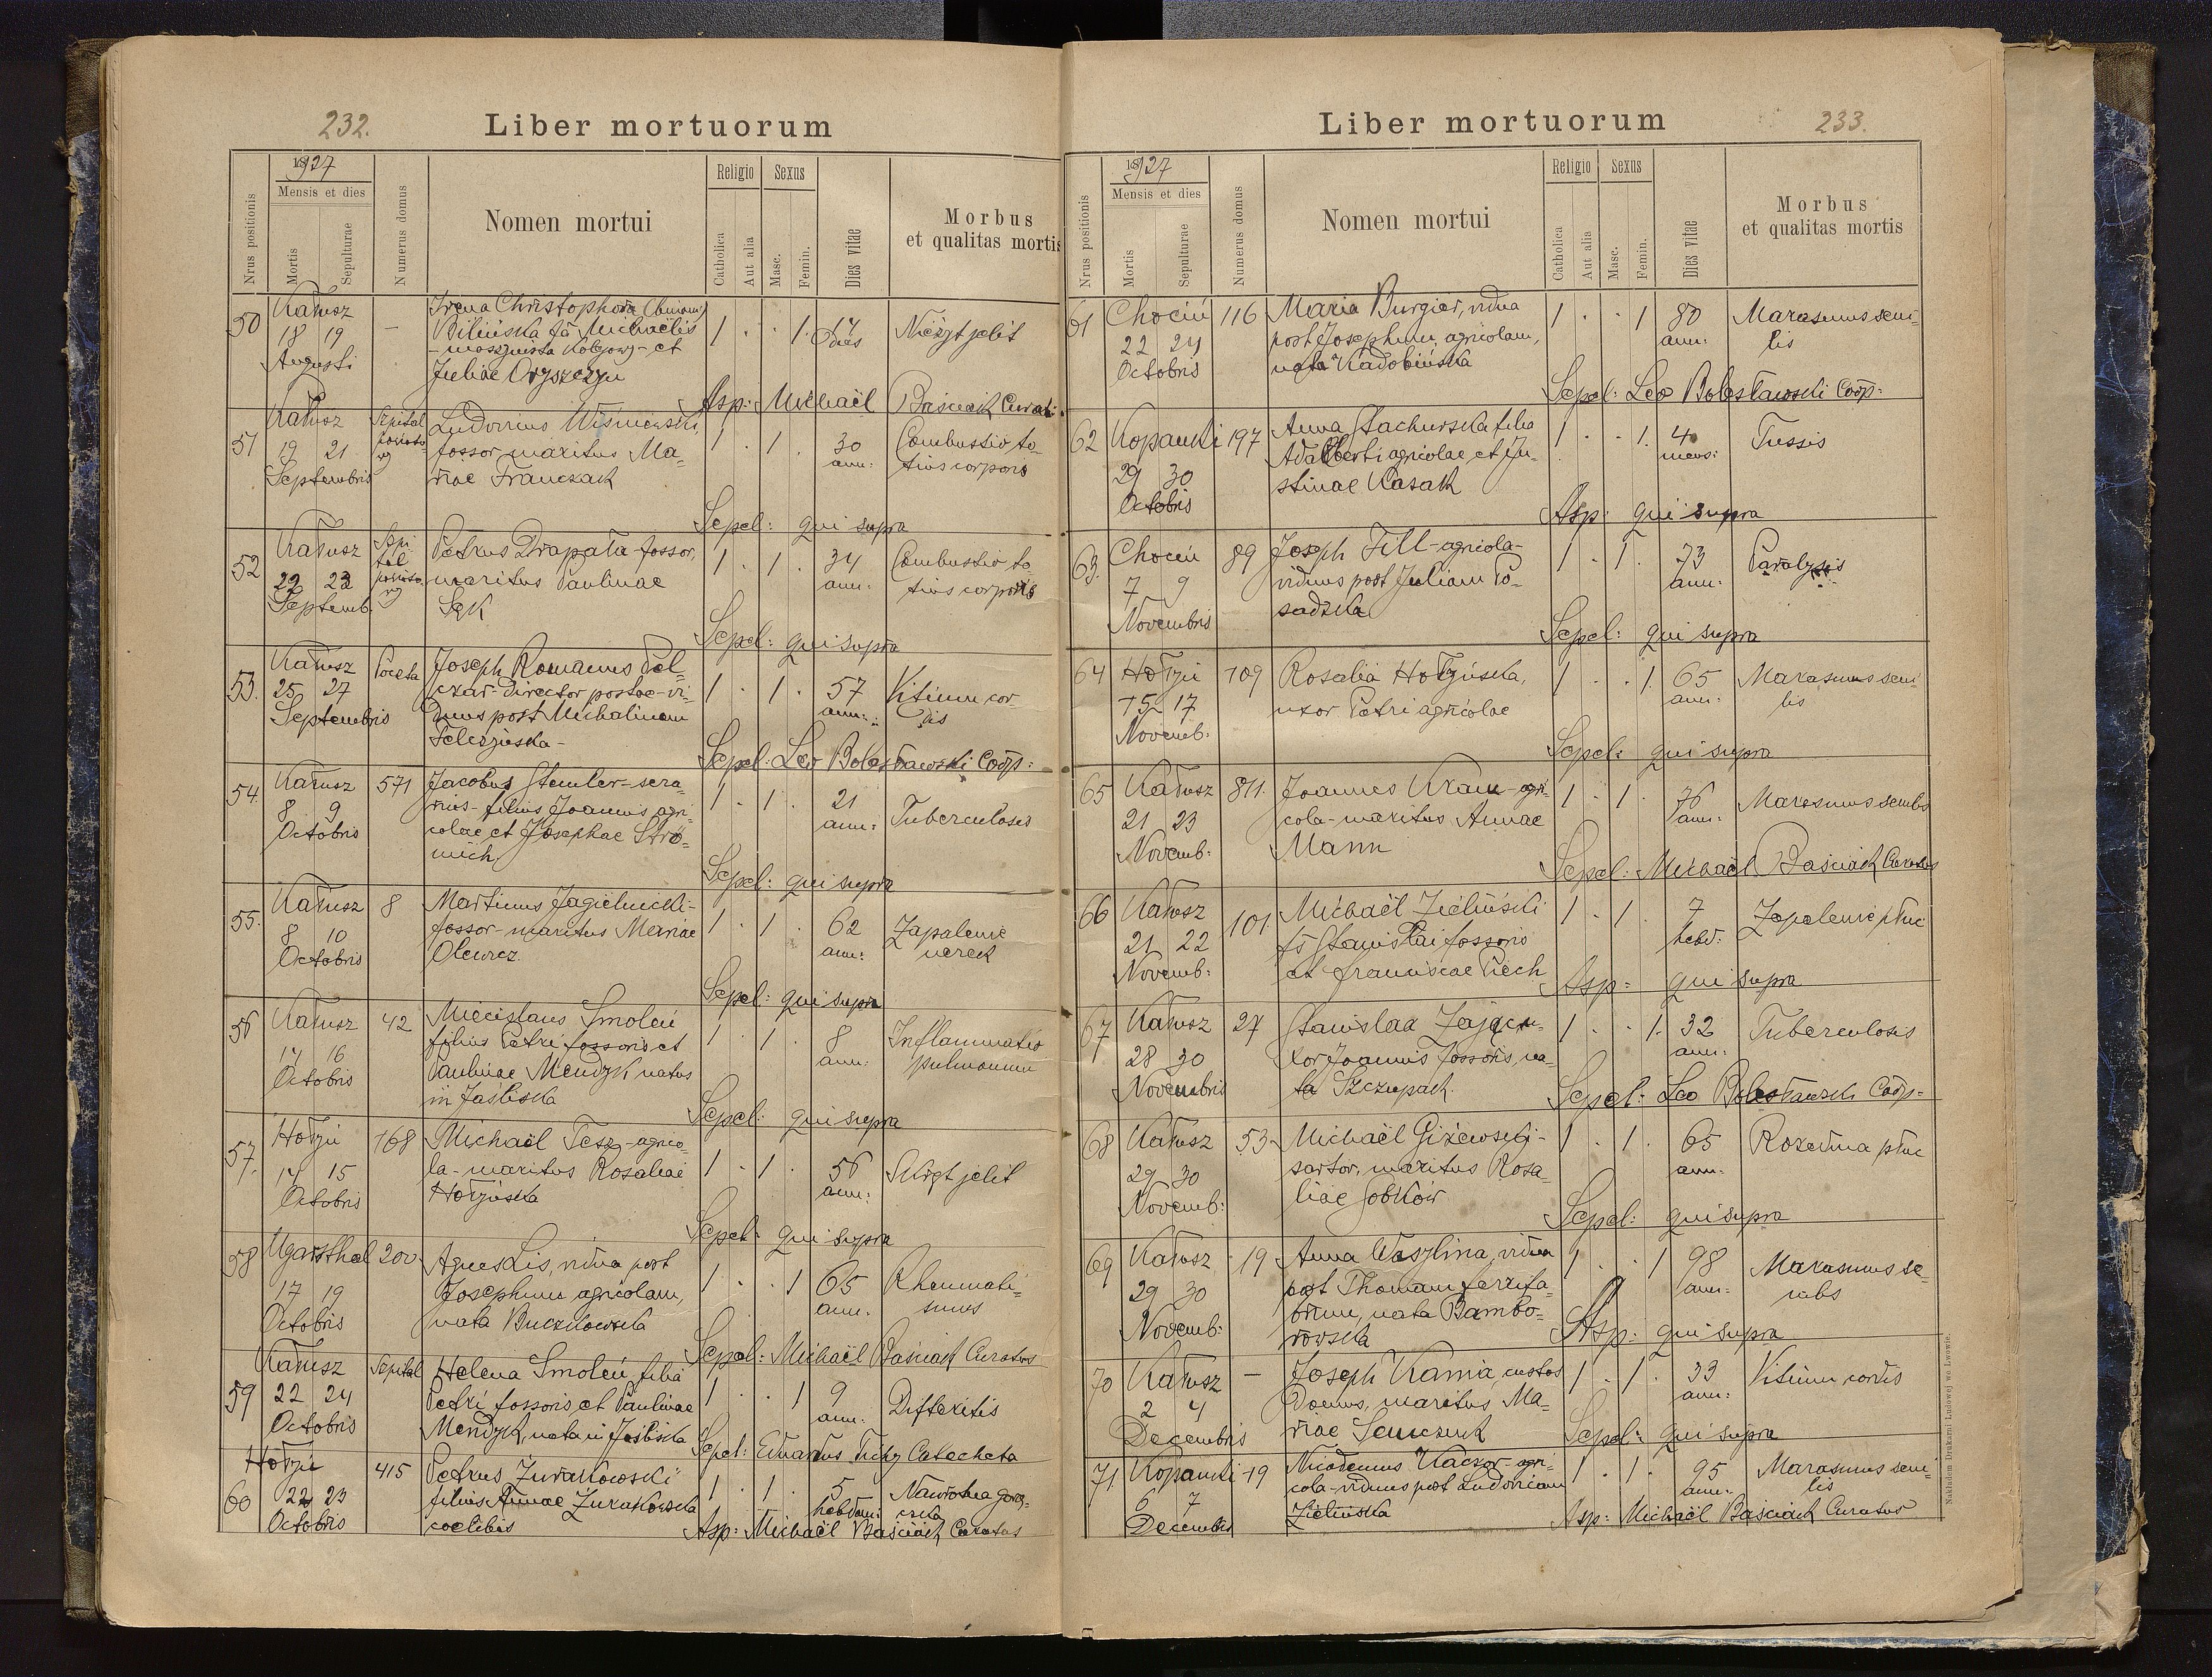 232.
Liber mortuorum
1927
Nrus positionis
Mensis et dies
Mortis
Sepulturae
Numerus domus
Nomen mortui
Religio
Catholica
Aut alia
Sexus
Masc.
Femin.
Dies vitae
Morbus
et qualitas mortis
50 Kałusz
18 19
Augusti
–
Irena Christophora (binom)
Bilińska fa Michaelis
- maszynista kolejowy - et
Juliae Oryszczyn
1 . . 1. 14
dies
Nieżyt jelit
Asp: Michaël Baściak Curat:
51 Kałusz
19 21
Septembris
Szpital
powiato-
wy
Ludovicus Wiśniewski,
fossor, maritus Ma-
riae Franczak
1 . 1 . 30
ann:
Combustio to-
tius corporis
Sepel: qui supra
52 Kałusz
22 23
Septemb.
Szpi-
tal
powiato-
wy
Petrus Drapała - fossor,
maritus Paulinae
Sęk
1 . 1 . 34
ann:
Combustio to-
tius corporis
Sepel: qui supra
53. Kałusz
25 27
Septembris
Poczta
Joseph Romanus Pel-
czar - director postae - vi-
duus post Michalinam
Teleżyńska -
1 . 1 . 57
ann:
Vitium cor-
dis
Sepel: Leo Bolesławski Coop:
54. Kałusz
8 9
Octobris
571
Jacobus Stemler - sera-
rius - filius Joannis agri-
colae et Josephae Stro-
mich
1 . 1 . 21
ann:
Tuberculosis
Sepel: qui supra
55. Kałusz
8 10
Octobris
8
Martinus Jagielnicki -
fossor - maritus Mariae
Olewicz
1 . 1 . 62
ann:
Zapalenie
nerek
Sepel: qui supra
56 Kałusz
14 16
Octobris
42
Miecislaus Smoleń
filius Petri fossoris et
Paulinae Mendyk natus
in Jaśliska
1 . 1 . 8
ann:
Inflammatio
pulmonum
Sepel: qui supra
57. Hołyń
14 15
Octobris
168
Michaël Tesz - agrico-
la - maritus Rosaliae
Hołyńska
1 . 1 . 56
ann:
Skręt jelit
Sepel: qui supra
58 Ugartsthal
17 19
Octobris
200
Agnes Lis, vidua post
Josephum agricolam,
nata Buczkowska
1 . . 1 65
ann:
Rheumati-
smus
Sepel: Michaël Baściak Curatus
59 Kałusz
22 24
Octobris
Szpital
Helena Smoleń filia
Petri fossoris et Paulinae
Mendyk, nata in Jaśliska
1 . . 1 9
ann:
Difteritis
Sepel: Eduardus Tichy Catecheta
60 Hołyń
22 23
Octobris
415
Petrus Zurakowski
filius Annae Zurakowska
coelibis
1 . 1 . 5
hebdom:
Nawrotna gorą-
czka
Asp: Michaël Baściak Curatus
Liber mortuorum
233.
1927
Nrus positionis
Mensis et dies
Mortis
Sepulturae
Numerus domus
Nomen mortui
Religio
Catholica
Aut alia
Sexus
Masc.
Femin.
Dies vitae
Morbus
et qualitas mortis
61 Chociń
22 24
Octobris
116
Maria Burgier, vidua
post Josephum, agricolam,
nata Kadobińska
1 . . 1 80
ann:
Marasmus seni-
lis
Sepel: Leo Bolesławski Coop:
62 Kopanki
29 30
Octobris
197
Anna Stachurska filia
Adalberti agricolae et Ju-
stinae Kasak
1 . . 1. 4
mens:
Tussis
Asp: qui supra
63. Chociń
7 9
Novembris
89
Joseph Till - agricola -
viduus post Juliam Po-
sadzka
1 . 1 . 73
ann:
Paralysis
Sepel: qui supra
64 Hołyń
15 17
Novemb:
109
Rosalia Hołyńska,
uxor Petri agricolae
1 . . 1. 65
ann:
Marasmus seni-
lis
Sepel: qui supra
65 Kałusz
21 23
Novemb:
811.
Joannes Kram - agri-
cola - maritus Annae
Mann
1 . 1 . 76
ann:
Marasmus senilis
Sepel: Michaël Baściak Curatus
66 Kałusz
21 22
Novemb:
101.
Michaël Zieliński
fs Stanislai fossoris
et Franciscae Piech
1 . 1 . 7
hebd:
Zapalenie płuc
Asp: qui supra
67 Kałusz
28 30
Novembris
27
Stanislaa Zając u-
xor Joannis fossoris, na-
ta Szczupak.
1 . . 1. 32
ann:
Tuberculosis
Sepel: Leo Bolesławski Coop:
68 Kałusz
29 30
Novemb:
53
Michaël Giżewski -
sartor, maritus Rosa-
liae Sobków
1 . 1 . 65
ann:
Rozedma płuc
Sepel: qui supra
69 Kałusz
29 30
Novemb:
19
Anna Waszlina, vidua
post Thomam ferrifa-
brum, nata Bambo-
rowska
1 . . 1 98
ann:
Marasmus se-
nilis
Asp: qui supra
70 Kałusz
2 4
Decembris
–
Joseph Kania, custos
domus, maritus Ma-
riae Senczuk
1 . 1 . 33
ann:
Vitium cordis
Sepel: qui supra
71 Kopanki
6 7
Decembris
19
Nicodemus Kaczor - agri-
cola - viduus post Ludovicam
Zielińska
1 . 1 . 95
ann:
Marasmus seni-
lis
Asp: Michaël Baściak Curatus
Nakładem Drukarni Ludowej we Lwowie.